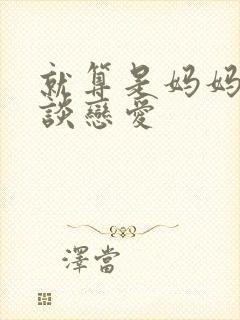 就算是妈妈
談戀愛
澤當